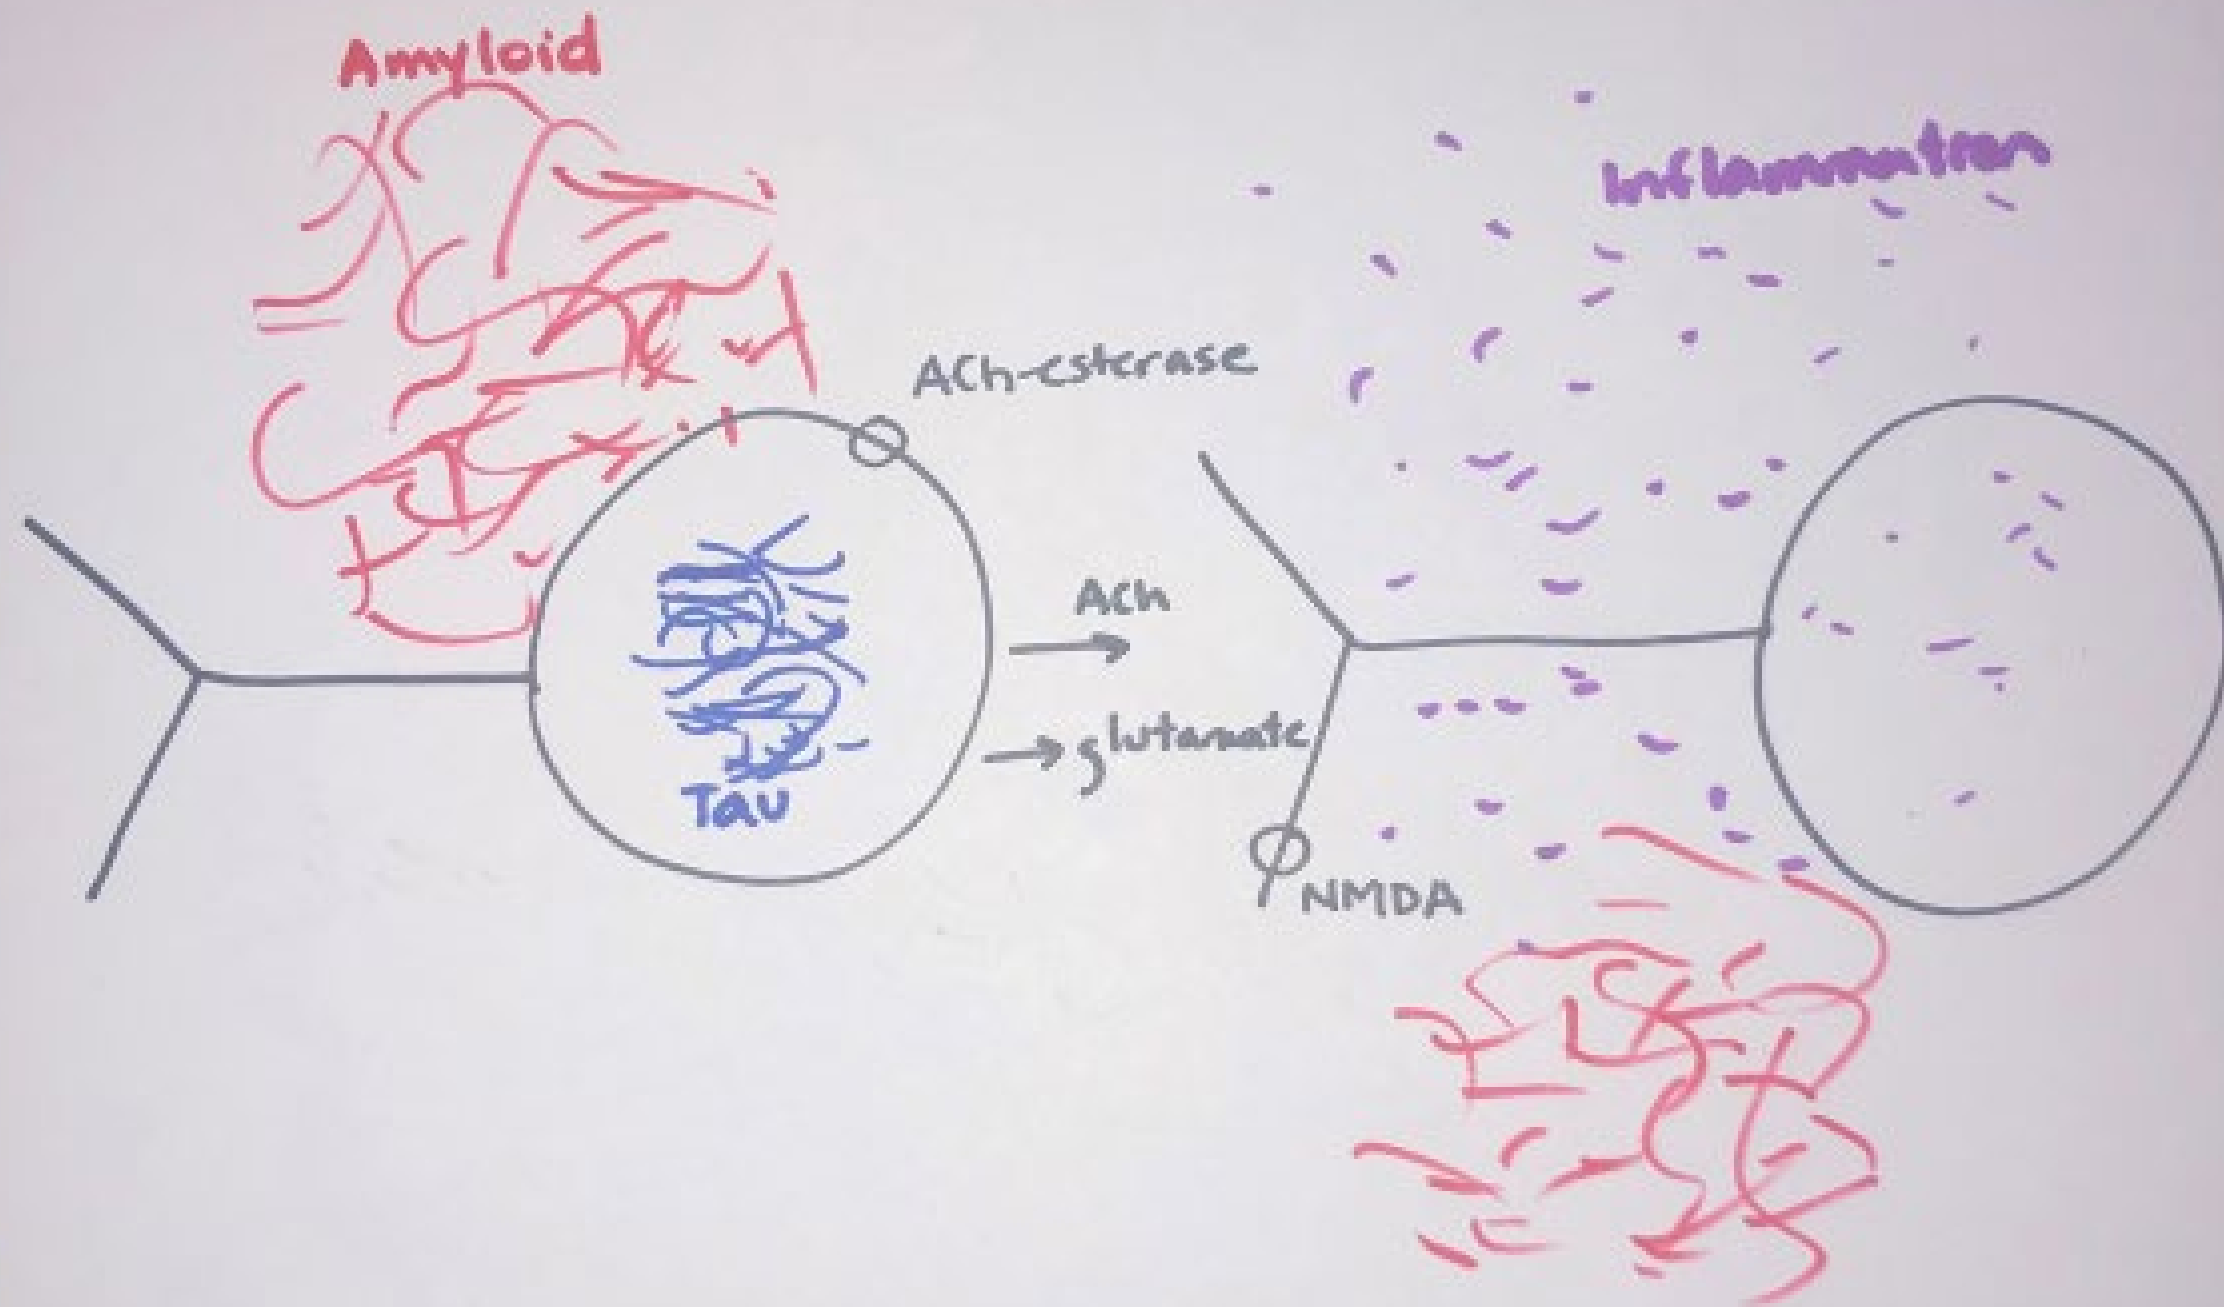 Amyloid
Inflammation
ACh-esterase
ACh
glutamate
Tau
NMDA